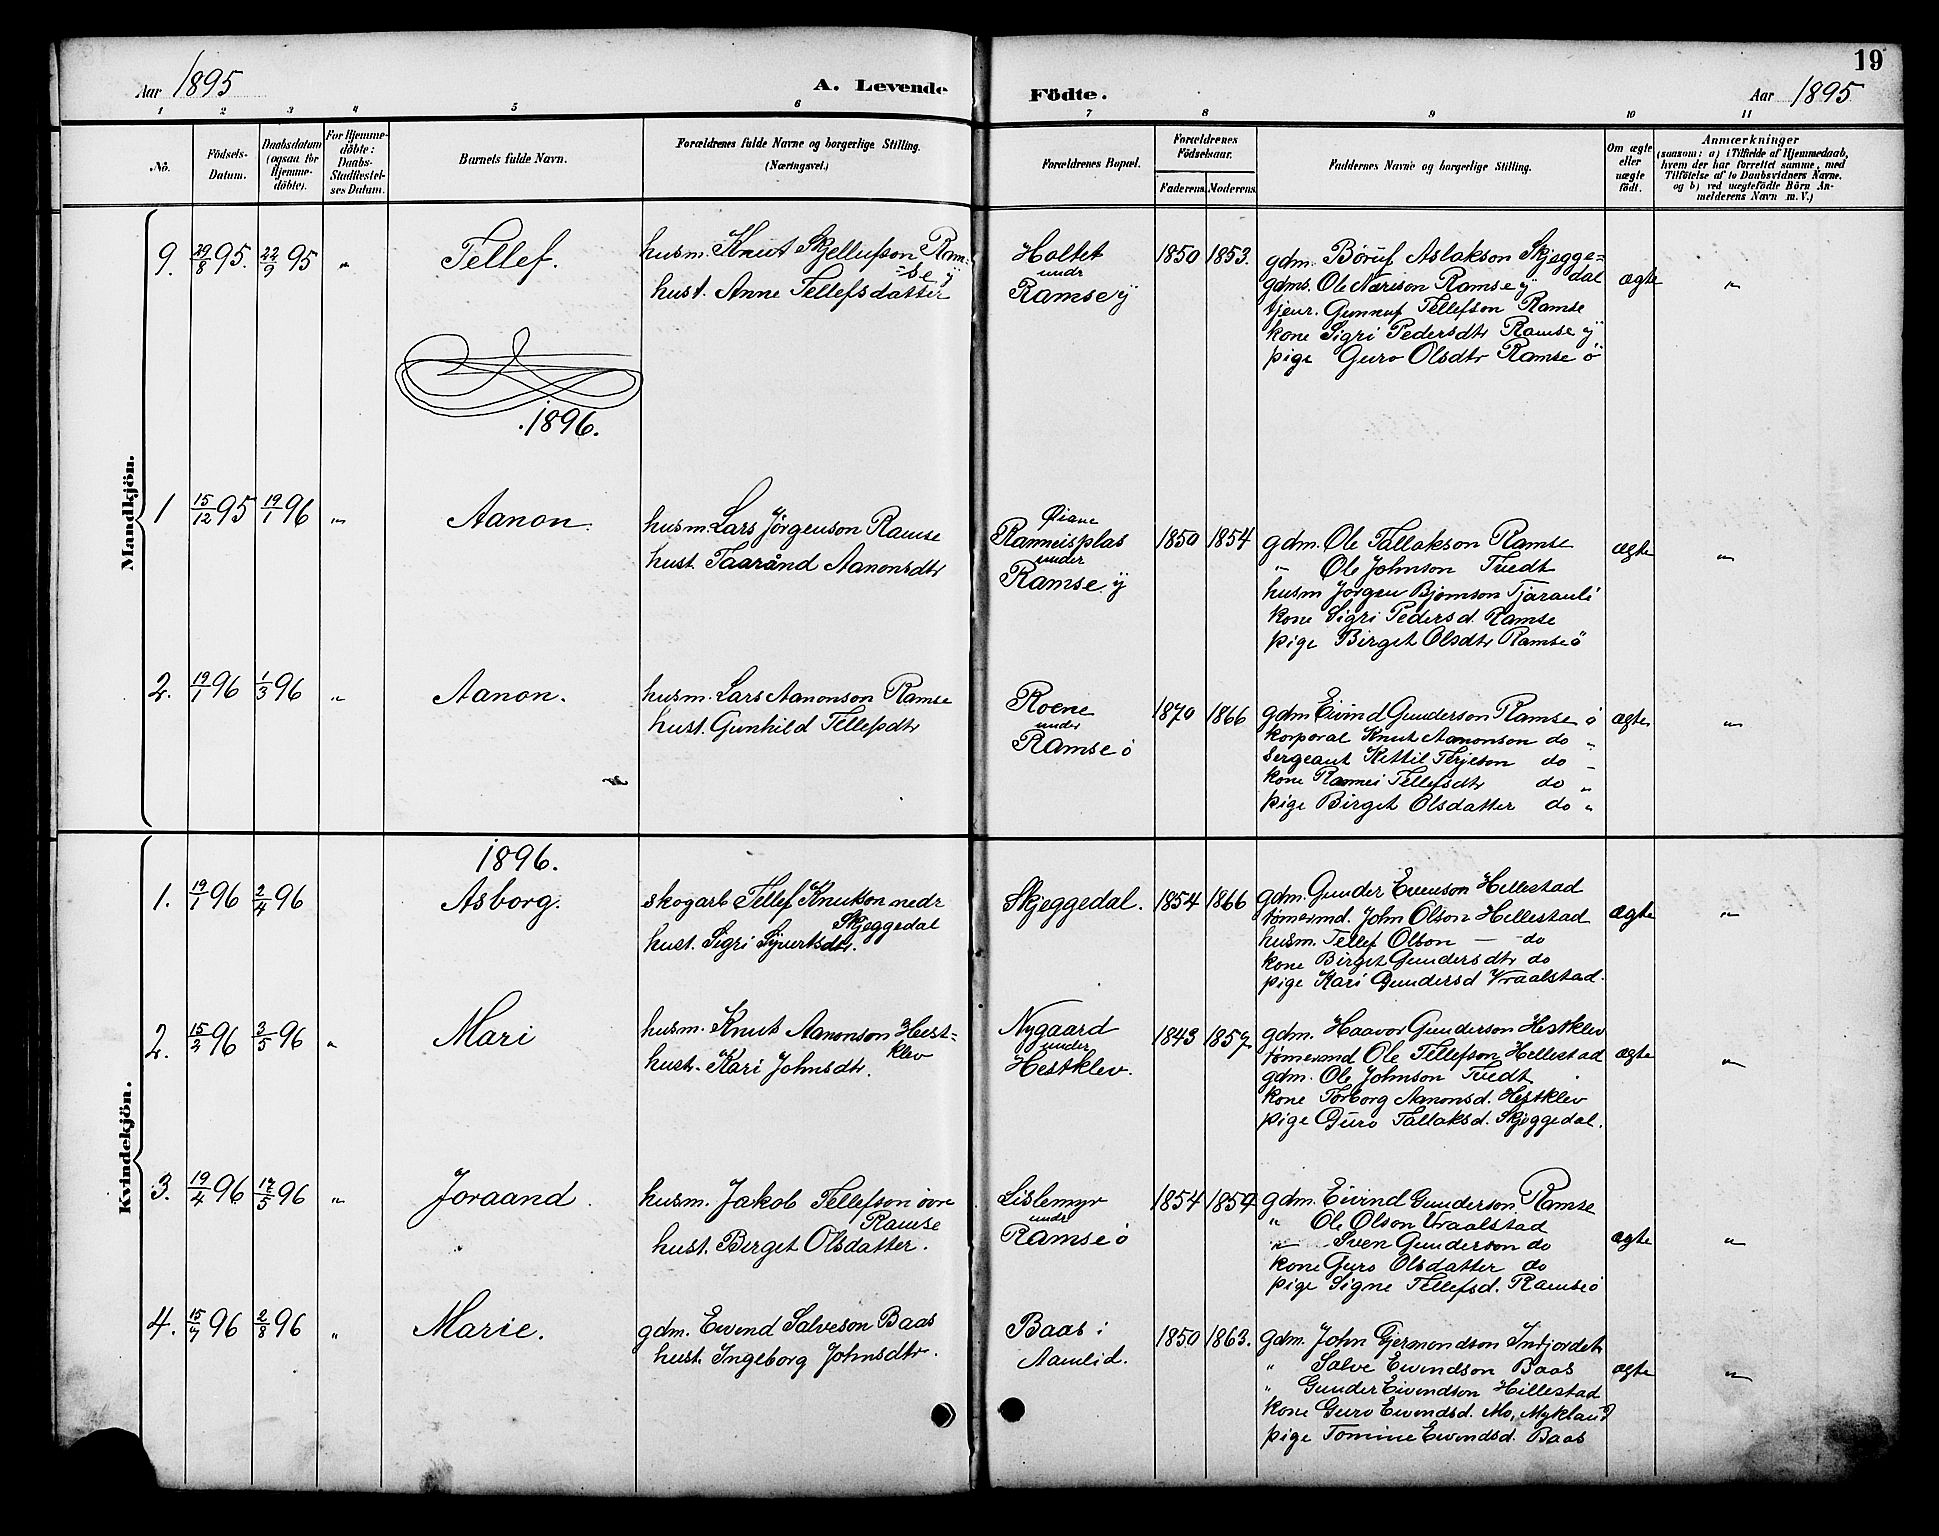 19
Aar 1895 A. Levende Födte. Aar 1895
1 2 3 4 5 6 7 8 9 10 11
No.
Födsels-
Datum.
Daabsdatum
(ogsaa for
Hjemme-
döbte).
For Hjemme-
döbte:
Daabs-
Stadfæstel-
ses Datum.
Barnets fulde Navn.
Forældrenes fulde Navne og borgerlige Stilling.
(Næringsvei.)
Forældrenes Bopæl.
Forældrenes
Födselsaar.
Faderens. Moderens.
Faddernes Navne og borgerlige Stilling.
Om ægte
eller
uægte
födt.
Anmærkninger
(saasom: a) i Tilfælde af Hjemmedaab,
hvem der har forrettet samme, med
Tilföielse af to Daabsvidners Navne,
og b) ved uægtefödte Börn An-
melderens Navn m. V.)
Mandkjön.
9. 29/8 95. 22/9 95 " Tellef.
husm. Knut Skjellufson Ram-
se ÿ
hust. Anne Tellefsdatter
Holtet
undr
Ramse ÿ
1850 1853.
gdm. Børuf Aslakson Skjegge-
dal
gdms. Ole Nærison Ramse ÿ
tjenr. Gunnuf Tellefson Ramse
kone Sigri Pedersdtr Ramse ÿ
pige Guro Olsdtr Ramse ö
ægte "
1896.
1 15/12 95 19/1 96 " Aanon.
husm. Lars Jörgenson Ramse
hust. Taarånd Aanonsdtr
Øiane
Ranneisplas
under
Ramse ÿ
1850 1854
gdm. Ole Tallakson Ramse
" Ole Johnson Tvedt
husm Jörgen Bjornson Tjaranli
kone Sigri Pedersd. Ramse
pige Birget Olsdtr Ramse ö
ægte "
2. 19/1 96 1/3 96 " Aanon.
husm. Lars Aanonson Ramse
hust. Gunhild Tellefsdtr
Roene
under
Ramse ö
1870 1866
gdm Eivind Gunderson Ramse ö
korporal Knut Aanonson do "
Sergeant Kettil Terjeson do "
kone Rannei Tellefsdtr do "
pige Birget Olsdatter do "
ægte "
Kvindekjön.
1896.
1. 19/1 96 2/4 96 Asborg.
skogarb Tellef Knutson nedr
Skjeggedal
hust. Sigri Sjurtsdtr.
Skjeggedal.
1854 1866
gdm. Gunder Evenson Hillestad
tømermd. John Olson Hillestad
husm. Tellef Olson — do
kone Birget Gundersdtr do
pige Kari Gundersd Vraalstad.
ægte "
2. 15/2 96 3/5 96 " Mari
husm. Knut Aanonson Hest-
klev
hust. Kari Johnsdtr.
Nygaard
under
Hestklev.
1843 1857
gdm. Haavor Gunderson Hestklev
tømermd Ole Tellefson Hillestad
gdm. Ole Johnson Tvedt
kone Torborg Aanonsd. Hestklev
pige Guro Tallaksd. Skjeggedal.
ægte "
3. 19/4 96 17/5 96 " Joraand.
husm. Jakob Tellefson övre
Ramse
hust. Birget Olsdatter.
Lislemyr
undr
Ramse ö
1854 1854
gdm. Eivind Gunderson Ramse
" Ole Olson Vraalstad
" Sven Gunderson do
kone Guro Olsdatter do
pige Signe Tellefsd. Ramse ö
ægte "
4. 15/7 96 2/8 96 " Marie.
gdm. Eivend Salveson Baas
hust. Ingeborg Johnsdtr.
Baas i
Aamlid.
1850 1863.
gdm. John Gjermondson Innfjordet
" Salve Eivendson Baas
" Gunder Eivendson Hillestad
kone Guro Eivendsd. Mo, Mykland
pige Tomine Eivendsd. Baas
ægte "